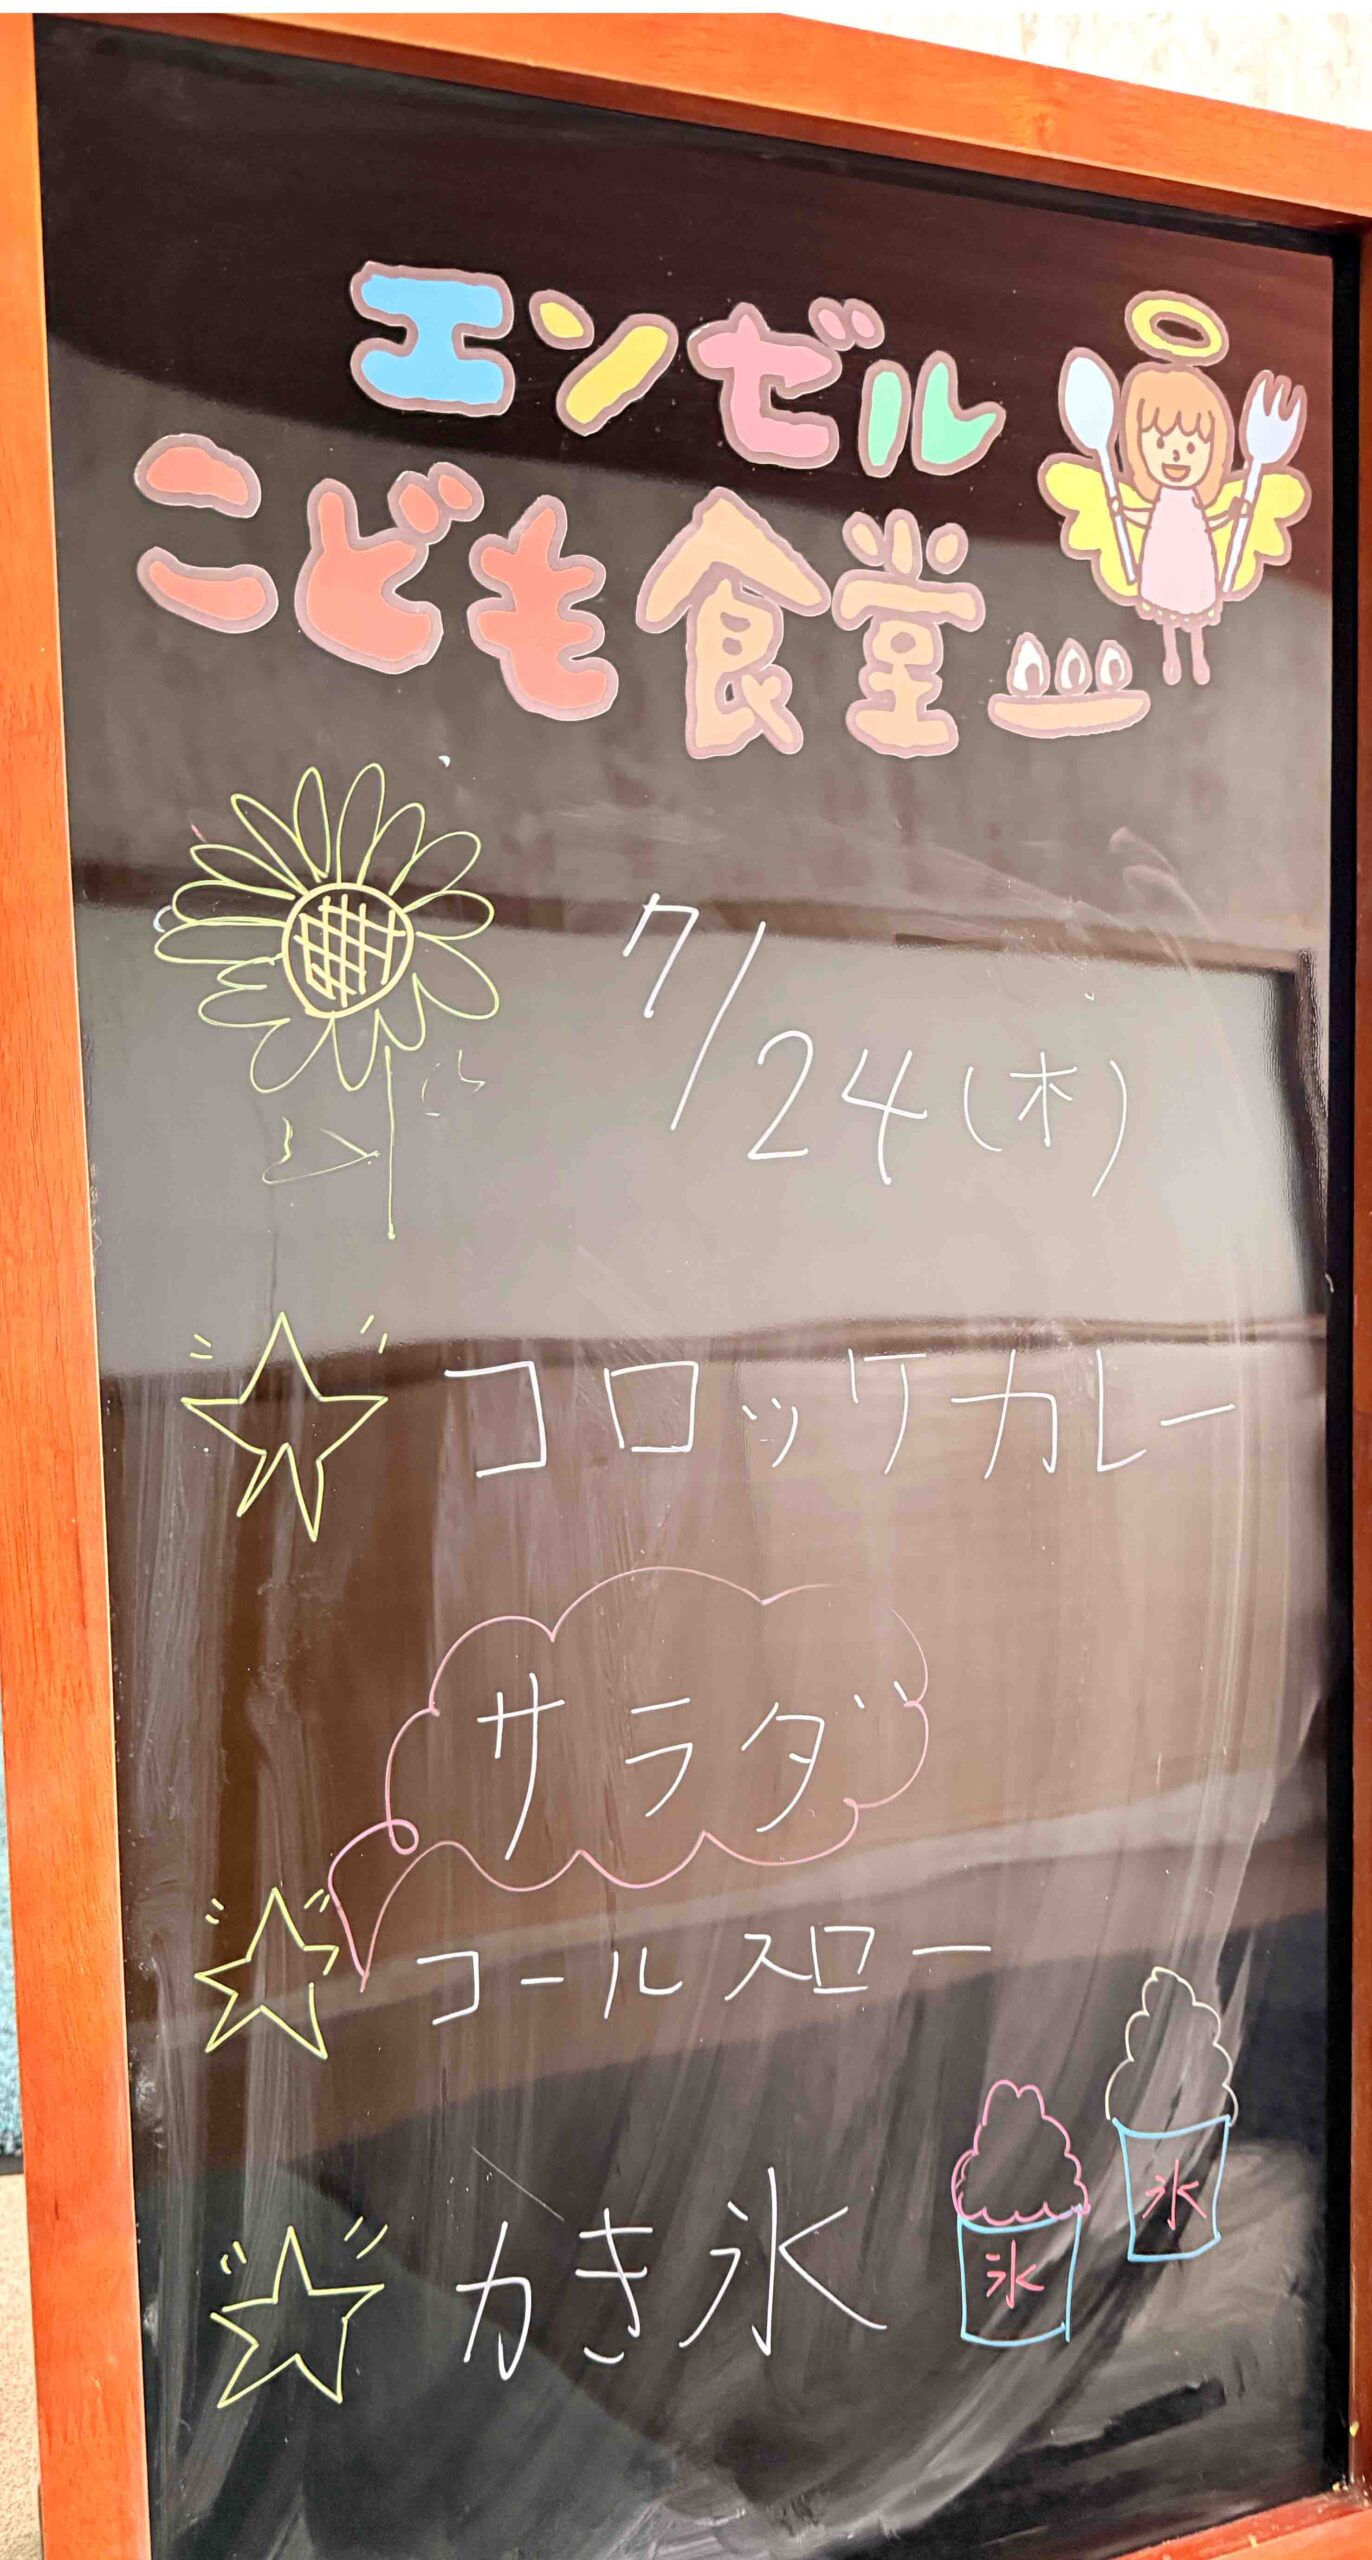 エンゼル
こども食堂
7/24(木)
コロッケカレー
サラダ
コールスロー
かき氷
氷
氷